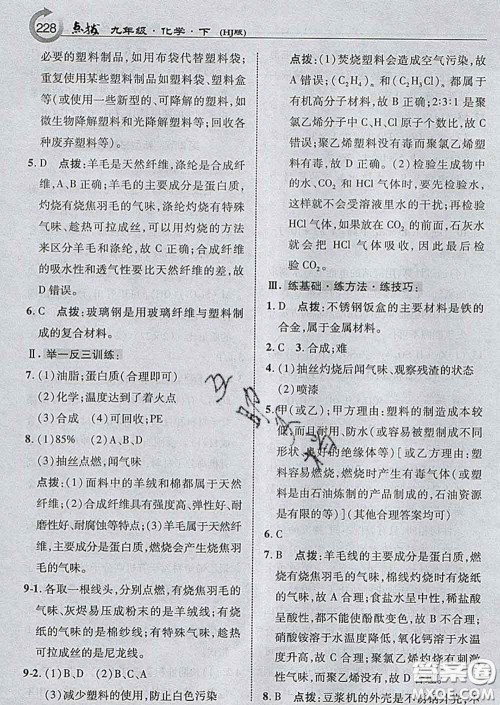 228 点拨 九年级·化学·下 (HJ版)
必要的塑料制品,如用布袋代替塑料袋;
重复使用某些塑料制品,如塑料袋、塑料
盒等;(或使用一些新型的、可降解的塑料,如
微生物降解塑料和光降解塑料等;回收各
种废弃塑料等)。
5. D 点拨:羊毛是天然纤维,涤纶是合成纤
维,A、B正确;羊毛的主要成分是蛋白质,
灼烧有烧焦羽毛的气味,涤纶灼烧有特殊
气味、趁热可拉成丝,可以用灼烧的方法
来区分羊毛和涤纶,故C正确;合成纤维
的吸水性和透气性要比天然纤维的差,故
D错误。
6. C 点拨:玻璃钢是用玻璃纤维与塑料制
成的复合材料。
Ⅱ. 举一反三训练:
7. (1)油脂;蛋白质(合理即可)
(2)化学;温度达到了着火点
(3)合成 (4)可回收;PE
8. (1)85% (2)A、B、D
(3)抽丝点燃,闻气味
点拨:(1)面料中的羊绒和桑蚕丝属于天
然纤维。(2)合成纤维具有强度高、弹性好、
耐磨性好、耐腐蚀等特点;(3)羊绒属于天然
纤维,主要成分是蛋白质,燃烧会产生烧焦羽
毛的气味。
9-1. 各取一根线头,分别点燃,有烧焦羽毛的
气味,灰烬易压成粉末的是羊绒线;有烧
纸的气味的是棉纱线;有特殊气味、趁热
可拉成丝的是尼龙线。
9-2. (1)A、B、C 2.
(3)减少塑料的使用,防止白色污染
点拨:(1)焚烧塑料会造成空气污染,故
A错误;
有机高分子材料,故B正确;2:3:1是聚
氯乙烯分子中C、H、Cl原子个数比,故C
错误;聚乙烯塑料没有毒而聚氯乙烯塑
料有毒,故D错误。(2)检验生成物中
的水、CO₂和HCl气体时,要先检验水,
这样就不会受溶液里水的干扰;再检验
HCl气体,后检验CO₂的原因是,石灰水
就会把HCl气体吸收,因此,故先HCl
后CO₂。
Ⅲ. 练基础·练方法·练技巧:
1. C 点拨:不锈钢饭盒的主要材料是铁的
合金,属于金属材料。
2. C 3. 合成;难
4. (1)抽丝灼烧后闻气味、观察残渣的状态
(2)喷漆
5. 甲(或乙);甲方理由:塑料的造成本较
低,而且耐用、防水(或容易被塑制成不同
形状、良好的绝缘体等)[或乙方理由:塑
料容易燃烧,燃烧时产生有毒气体(或塑料
是由石油炼制的产品制成的,石油资源是
有限的等)](其他合理答案均可)
6. D
7. B 点拨:羊毛线的主要成分是蛋白质,燃
烧有烧焦羽毛的气味,棉线灼烧有烧纸的
气味,能鉴别;食盐水呈中性,稀盐酸显酸性,
都不能使酚酞变色,不能鉴别;
硝酸铵溶于水温度降低,氧化钙溶于水温
度升高,能鉴别;聚乙烯灼烧没有刺激性
气味,而聚氯乙烯灼烧有刺激性气味,能
鉴别。
8. B 点拨:豆浆机的外壳是不
答案圈
MXQE.COM